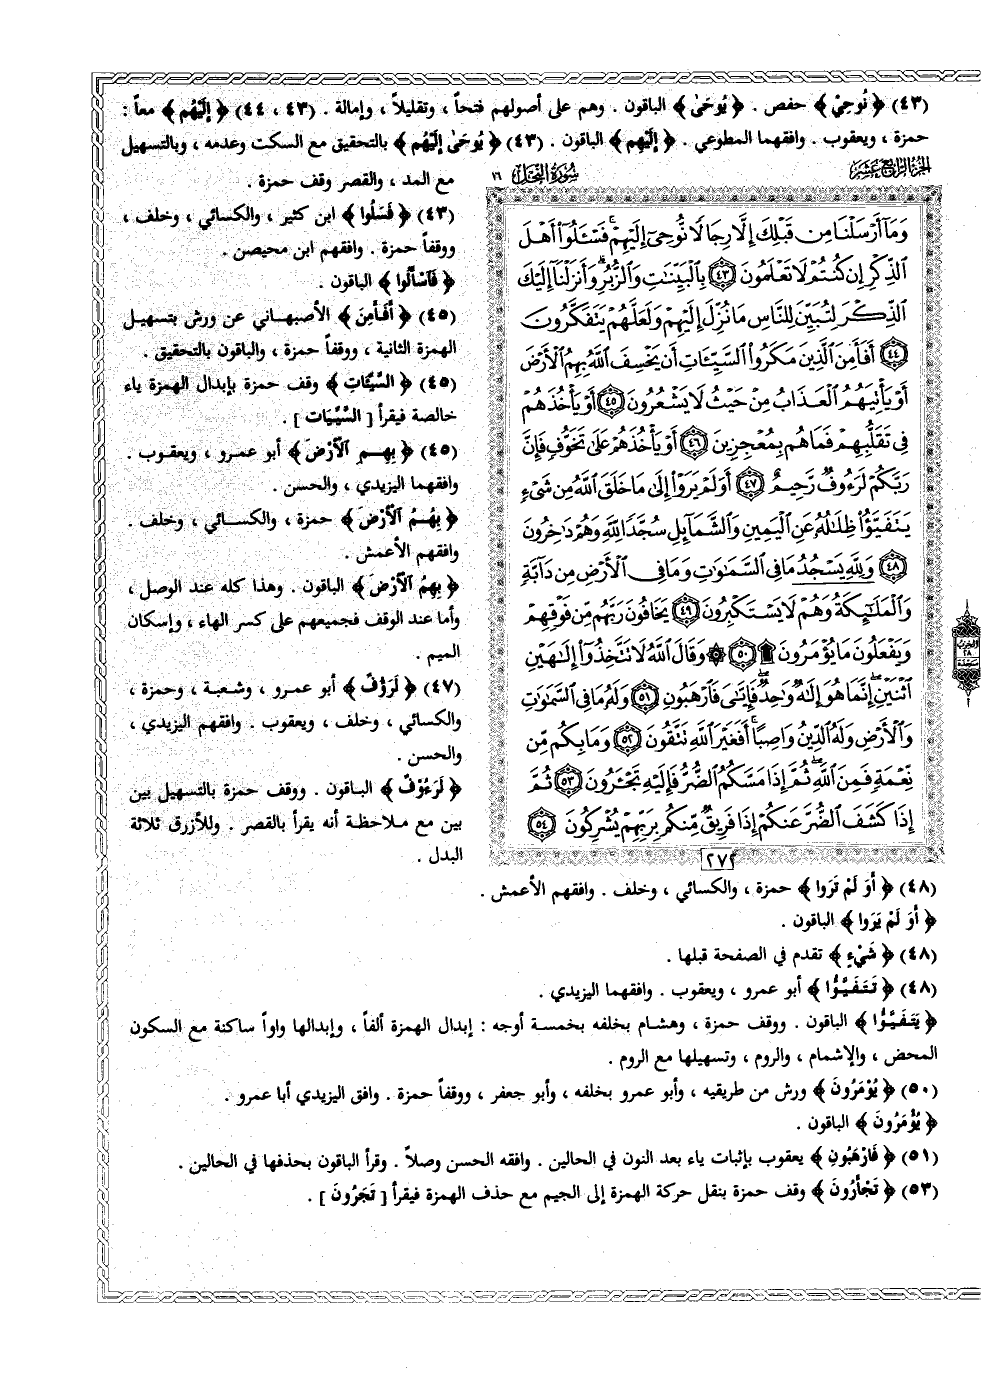 (٤٣) ﴿ نُوحِيْ ﴾ حفص . ﴿ يُوحَىٰ ﴾ الباقون . وهم على أصولهم فتحاً ، وتقليلاً ، وإمالة . (٤٣ ، ٤٤) ﴿ إِلَيْهُم ﴾ معاً :
حمزة ، ويعقوب . وافقهما المطوعي . ﴿ إِلَيْهِم ﴾ الباقون . (٤٣) ﴿ يُوحَىٰ إِلَيْهُم ﴾ بالتحقيق مع السكت وعدمه ، وبالتسهيل
الجزء الرابع عشر
سورة النحل ١٦
وَمَآ أَرْسَلْنَا مِن قَبْلِكَ إِلَّا رِجَالًا نُّوحِىٓ إِلَيْهِمْ ۚ فَسْـَٔلُوٓا۟ أَهْلَ
ٱلذِّكْرِ إِن كُنتُمْ لَا تَعْلَمُونَ ٤٣ بِٱلْبَيِّنَٰتِ وَٱلزُّبُرِ ۗ وَأَنزَلْنَآ إِلَيْكَ
ٱلذِّكْرَ لِتُبَيِّنَ لِلنَّاسِ مَا نُزِّلَ إِلَيْهِمْ وَلَعَلَّهُمْ يَتَفَكَّرُونَ
٤٤ أَفَأَمِنَ ٱلَّذِينَ مَكَرُوا۟ ٱلسَّيِّـَٔاتِ أَن يَخْسِفَ ٱللَّهُ بِهِمُ ٱلْأَرْضَ
أَوْ يَأْتِيَهُمُ ٱلْعَذَابُ مِنْ حَيْثُ لَا يَشْعُرُونَ ٤٥ أَوْ يَأْخُذَهُمْ
فِى تَقَلُّبِهِمْ فَمَا هُم بِمُعْجِزِينَ ٤٦ أَوْ يَأْخُذَهُمْ عَلَىٰ تَخَوُّفٍ فَإِنَّ
رَبَّكُمْ لَرَءُوفٌ رَّحِيمٌ ٤٧ أَوَلَمْ يَرَوْا۟ إِلَىٰ مَا خَلَقَ ٱللَّهُ مِن شَىْءٍ
يَتَفَيَّؤُا۟ ظِلَٰلُهُۥ عَنِ ٱلْيَمِينِ وَٱلشَّمَآئِلِ سُجَّدًا لِّلَّهِ وَهُمْ دَٰخِرُونَ
٤٨ وَلِلَّهِ يَسْجُدُ مَا فِى ٱلسَّمَٰوَٰتِ وَمَا فِى ٱلْأَرْضِ مِن دَآبَّةٍ
وَٱلْمَلَٰٓئِكَةُ وَهُمْ لَا يَسْتَكْبِرُونَ ٤٩ يَخَافُونَ رَبَّهُم مِّن فَوْقِهِمْ
وَيَفْعَلُونَ مَا يُؤْمَرُونَ ۩ ٥٠ ۞ وَقَالَ ٱللَّهُ لَا تَتَّخِذُوٓا۟ إِلَٰهَيْنِ
ٱثْنَيْنِ ۖ إِنَّمَا هُوَ إِلَٰهٌ وَٰحِدٌ ۖ فَإِيَّٰىَ فَٱرْهَبُونِ ٥١ وَلَهُۥ مَا فِى ٱلسَّمَٰوَٰتِ
وَٱلْأَرْضِ وَلَهُ ٱلدِّينُ وَاصِبًا ۚ أَفَغَيْرَ ٱللَّهِ تَتَّقُونَ ٥٢ وَمَا بِكُم مِّن
نِّعْمَةٍ فَمِنَ ٱللَّهِ ۖ ثُمَّ إِذَا مَسَّكُمُ ٱلضُّرُّ فَإِلَيْهِ تَجْـَٔرُونَ ٥٣ ثُمَّ
إِذَا كَشَفَ ٱلضُّرَّ عَنكُمْ إِذَا فَرِيقٌ مِّنكُم بِرَبِّهِمْ يُشْرِكُونَ ٥٤
٢٧٢
الحزب
٢٨
سجدة
مع المد ، والقصر وقف حمزة .
(٤٣) ﴿ فَسَلُوا ﴾ ابن كثير ، والكسائي ، وخلف ،
ووقفاً حمزة . وافقهم ابن محيصن .
﴿ فَاسْأَلُوا ﴾ الباقون .
(٤٥) ﴿ أَفَأَمِنَ ﴾ الأصبهاني عن ورش بتسهيل
الهمزة الثانية ، ووقفاً حمزة ، والباقون بالتحقيق .
(٤٥) ﴿ السَّيِّئَاتِ ﴾ وقف حمزة بإبدال الهمزة ياء
خالصة فيقرأ [ السَّيِّيَات ] .
(٤٥) ﴿ بِهِمِ الْأَرْضَ ﴾ أبو عمرو ، ويعقوب .
وافقهما اليزيدي ، والحسن .
﴿ بِهُمُ الْأَرْضَ ﴾ حمزة ، والكسائي ، وخلف .
وافقهم الأعمش .
﴿ بِهِمُ الْأَرْضَ ﴾ الباقون . وهذا كله عند الوصل ،
وأما عند الوقف فجميعهم على كسر الهاء ، وإسكان
الميم .
(٤٧) ﴿ لَرَؤُفٌ ﴾ أبو عمرو ، وشعبة ، وحمزة ،
والكسائي ، وخلف ، ويعقوب . وافقهم اليزيدي ،
والحسن .
﴿ لَرَءُوْفٌ ﴾ الباقون . ووقف حمزة بالتسهيل بين
بين مع ملاحظة أنه يقرأ بالقصر . وللأزرق ثلاثة
البدل .
(٤٨) ﴿ أَوَ لَمْ تَرَوا ﴾ حمزة ، والكسائي ، وخلف . وافقهم الأعمش .
﴿ أَوَ لَمْ يَرَوا ﴾ الباقون .
(٤٨) ﴿ شَيْءٍ ﴾ تقدم في الصفحة قبلها .
(٤٨) ﴿ تَتَفَيَّؤُا ﴾ أبو عمرو ، ويعقوب . وافقهما اليزيدي .
﴿ يَتَفَيَّؤُا ﴾ الباقون . ووقف حمزة ، وهشام بخلفه بخمسة أوجه : إبدال الهمزة ألفاً ، وإبدالها واواً ساكنة مع السكون
المحض ، والإشمام ، والروم ، وتسهيلها مع الروم .
(٥٠) ﴿ يُوْمَرُونَ ﴾ ورش من طريقيه ، وأبو عمرو بخلفه ، وأبو جعفر ، ووقفاً حمزة . وافق اليزيدي أبا عمرو .
﴿ يُؤْمَرُونَ ﴾ الباقون .
(٥١) ﴿ فَارْهَبُونِ ﴾ يعقوب بإثبات ياء بعد النون في الحالين . وافقه الحسن وصلاً . وقرأ الباقون بحذفها في الحالين .
(٥٣) ﴿ تَجْأَرُونَ ﴾ وقف حمزة بنقل حركة الهمزة إلى الجيم مع حذف الهمزة فيقرأ [ تَجَرُونَ ] .